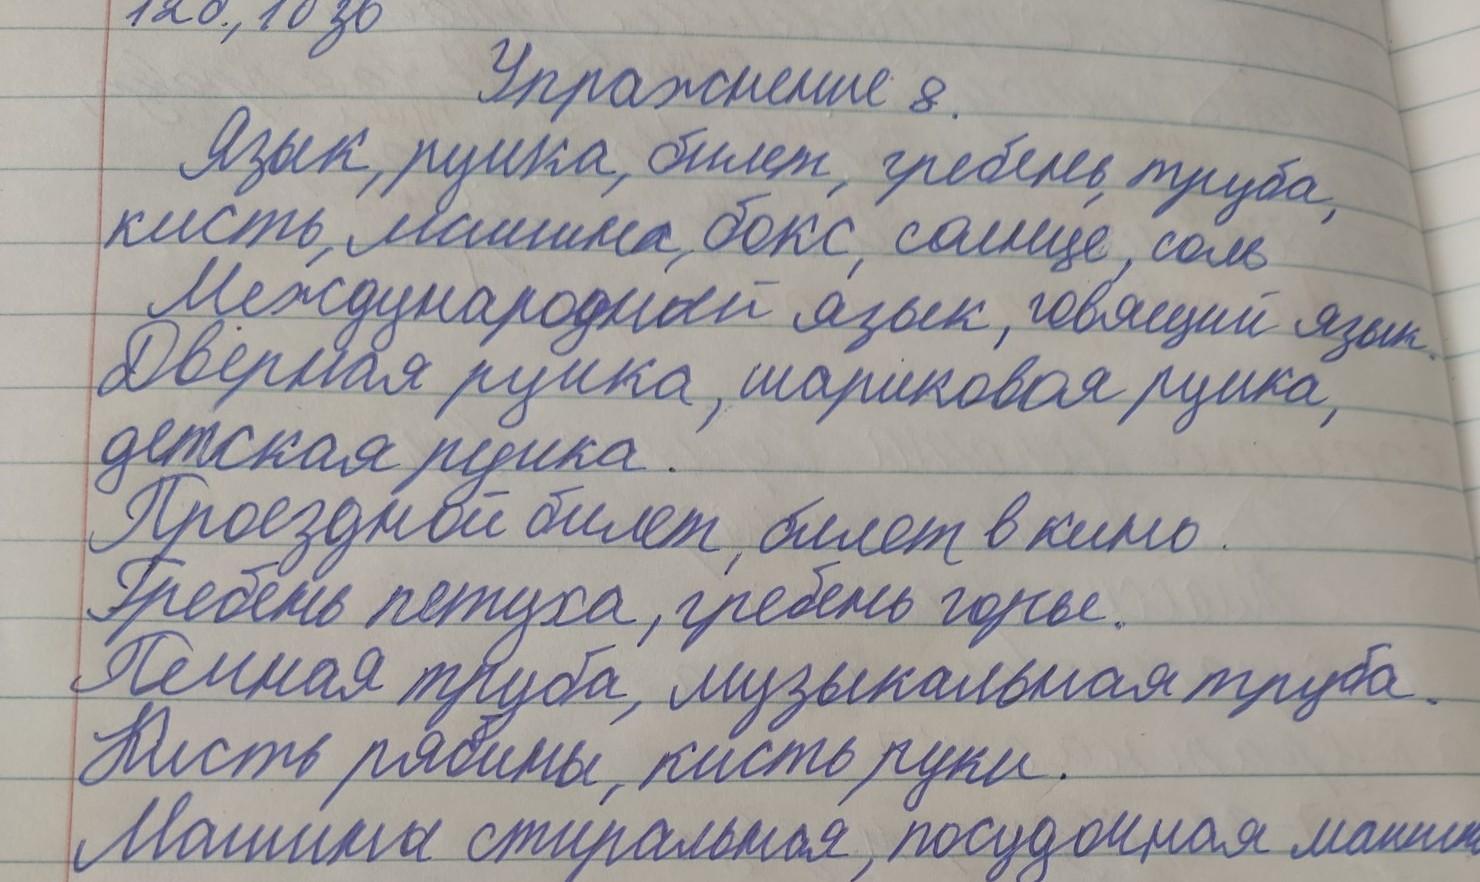 Упражнение 8.
Язык, ручка, билет, гребень, труба,
кисть, машина, бокс, солнце, соль
Международный язык, говящий язык.
Дверная ручка, шариковая ручка,
детская ручка.
Проездной билет, билет в кино.
Гребень петуха, гребень горы.
Печная труба, музыкальная труба.
Кисть рябины, кисть руки.
Машина стиральная, посудочная машина